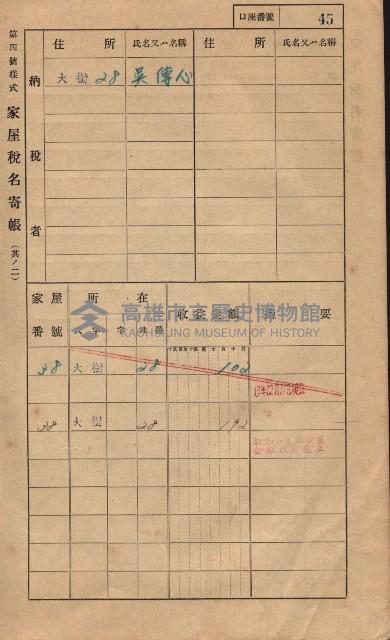 口座番號 45
第四號樣式 家屋稅名寄帳 (共ノ二)
納稅者
住所 氏名又ハ名稱 住所 氏名又ハ名稱
大樹 28 吳傳心
家屋番號 所在 收益金額 摘要
38 大樹 28 102
38 大樹 28 192
高雄市立歷史博物館
KAOHSIUNG MUSEUM OF HISTORY